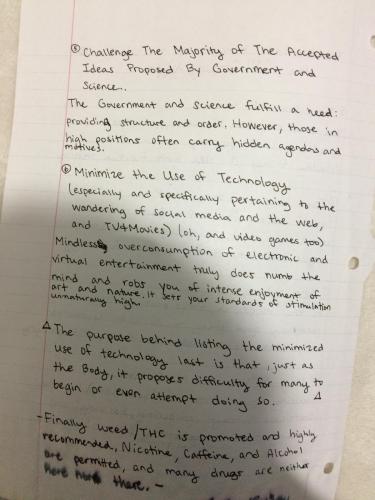 ⑤ Challenge The Majority of The Accepted
Ideas Proposed By Government and
Science..
The Government and science fulfill a need:
providing structure and order. However, those in
high positions often carry hidden agendas and
motives.
⑥ Minimize the Use of Technology
(especially and specifically pertaining to the
wandering of social media and the web,
and TV & Movies) (oh, and video games too)
Mindless overconsumption of electronic and
virtual entertainment truly does numb the
mind and robs you of intense enjoyment of
art and nature. it sets your standards of stimulation
unnaturally high.
∆ The purpose behind listing the minimized
use of technology last is that, just as
the Body, it proposes difficulty for many to
begin or even attempt doing so. ∆
- Finally weed/THC is promoted and highly
recommended, Nicotine, Caffeine, and Alcohol
are permitted, and many drugs are neither
here there. -